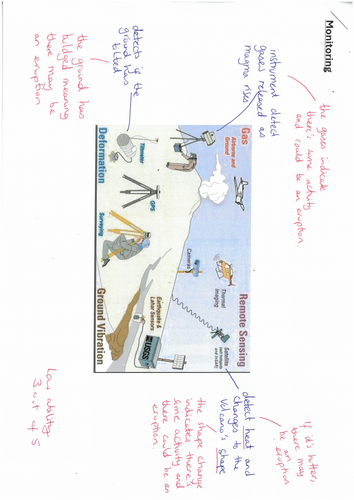 Monitoring
instrument detect
gases released as
magma rises
the gases indicate
there's some activity
and could be an eruption.
detects if the
ground has
tilted
the ground has
bulged meaning
there may be
an eruption
Gas
Airborne and
Ground
Remote Sensing
Satellite
Thermal
imaging
Camera
Deformation
Tiltmeter
GPS
Surveying
Ground Vibration
Earthquake &
Lahar Sensors
USGS
detect heat and
changes to the
volcano's shape
If it's hotter,
there may
be an
eruption
the shape change
indicates there's
some activity and
there could be an
eruption.
Low ability
3 out of 5